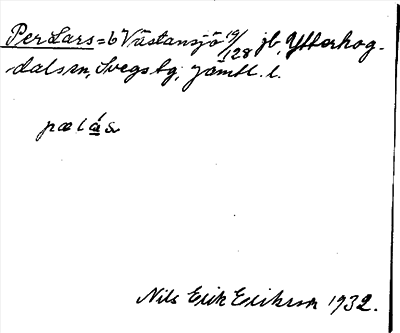 Per Lars=b Västansjö 1 19/128 jb, Ytterhog-
dals sn, Svegs tg, Jämtl. l.
pælás
Nils Erik Erikson 1932.